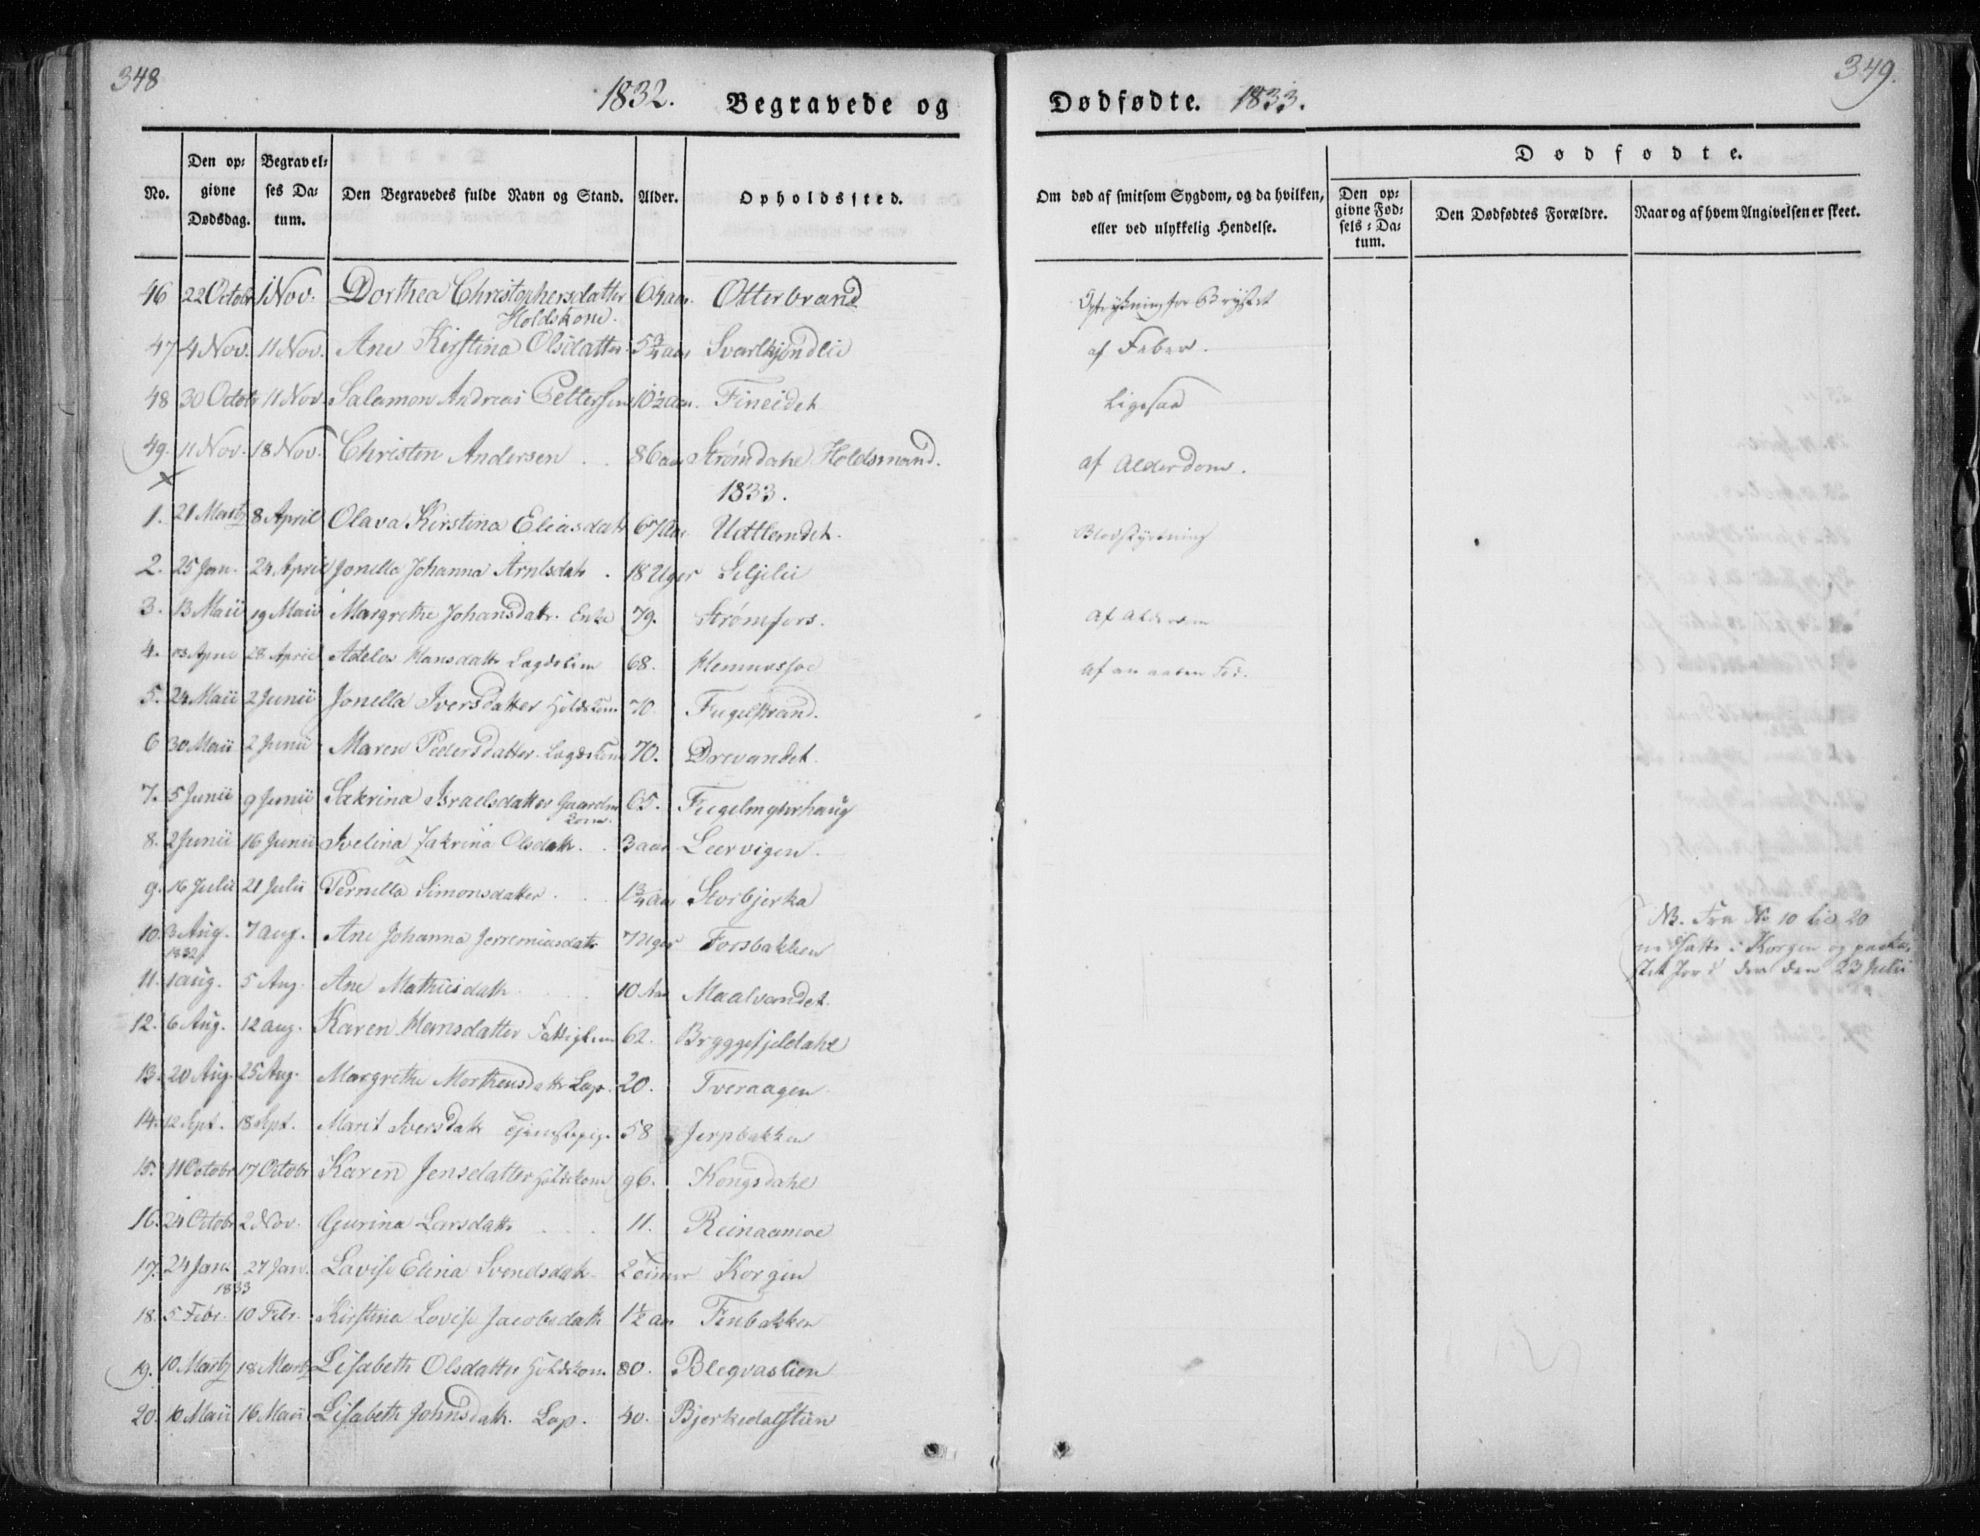 348
1832. Begravede og
Dødfødte. 1833.
349.
No.
Den op-
givne
Dødsdag.
Begravel-
ses Da-
tum.
Den Begravedes fulde Navn og Stand.
Alder.
Opholdssted.
Om død af smitsom Sygdom, og da hvilken,
eller ved ulykkelig Hendelse.
Dødfødte.
Den op-
givne Fød-
sels-Da-
tum.
Den Dødfødtes Forældre.
Naar og af hvem Angivelsen er skeet.
46 22 Octobr 1 Nov. Dorthea Christophersdatter 64 aar. Otterbrand for Brystet
Holdskone.
47 4 Nov. 11 Nov. Ane Kirstina Olsdatter 5 3/4 aar af Feber.
48 30 Octobr 11 Nov. Salamon Andreas Pettersen 10 1/2 aar. Fineidet Ligesaa
49. 11 Nov. 18 Nov. Christen Andersen . . 86 aar Strømdahl Holdsmand. af Alderdom.
1833.
1. 21 Martz 8 April Olava Kirstina Eliasdatt 67 Aar. Udtlendet. Blodstyrtning
2. 25 Jan. 24 April Jonella Johanna Arntsdatr . 18 Uger Siljelii
3. 13 Maii 19 Maii Margrethe Johansdatr. Enke 79. Strømfors. af Alderdom
4. April 28 April Hansdattr Lægdslem 68. af en aaben Fod.
5. 24 Maii 2 Junii Jonella Iversdatter Holdskone 70. Fugelstrand.
6 30 Maii 2 Junii Maren Pedersdatter Lægdslem 70. Drevandet.
7. 5 Junii 9 Junii Sakrina Israelsdatter Gaardm 65. Fugelmyrhaug
kone.
8. 2 Junii 16 Junii Ivelina Zakrina Olsdatt. . 3 aar Leervigen.
9. 16 Julii 21 Julii Pernilla Simonsdatter . . . 1 3/4 aar Storbjerka
10. 3 Aug. 7 aug. Ane Johanna Jerremiasdatt 7 Uger Forsbakken NB. Fra No 10 til 20
1832
nedsatte i Korgen og paaka-
stet Jord der den 23 Julii
11. 1 aug. 5 Aug. Ane Mathiisdatt 10 Aar Maalvandet.
12. 6 Aug. 12 aug. Karen Hansdatter Fattiglem 62. Bryggefjeldahl
13. 20 Aug. 25 Aug. Margrethe Morthensdattr Lap. 20. Tveraagen
14. 12 Sept. 18 Sept. Marit Iversdatt Tjenstepige 58 Jerpbakken
15. 11 Octobr 17 Octobr Karen Jensdatter Holdskone 96. Kongsdahl
16. 24 Octobr 2 Nov. Gurina Larsdattr . . . 11. Reinaamoe
17. 24 Jan. 27 Jan. Lovise Elina Svendsdatt 2 Timer Korgen
1833
18. 5 Febr. 10 Febr. Kirstina Lovise Jacobsdatt 1 1/2 aar Finbakken
19. 10 Martz 18 Martz Lisabeth Olsdatter Holdskone 80. Blegvaslien
20. 10 Maii 16 Maii Lisabeth Johnsdatt. Lap. 40. Bjerkedalstien